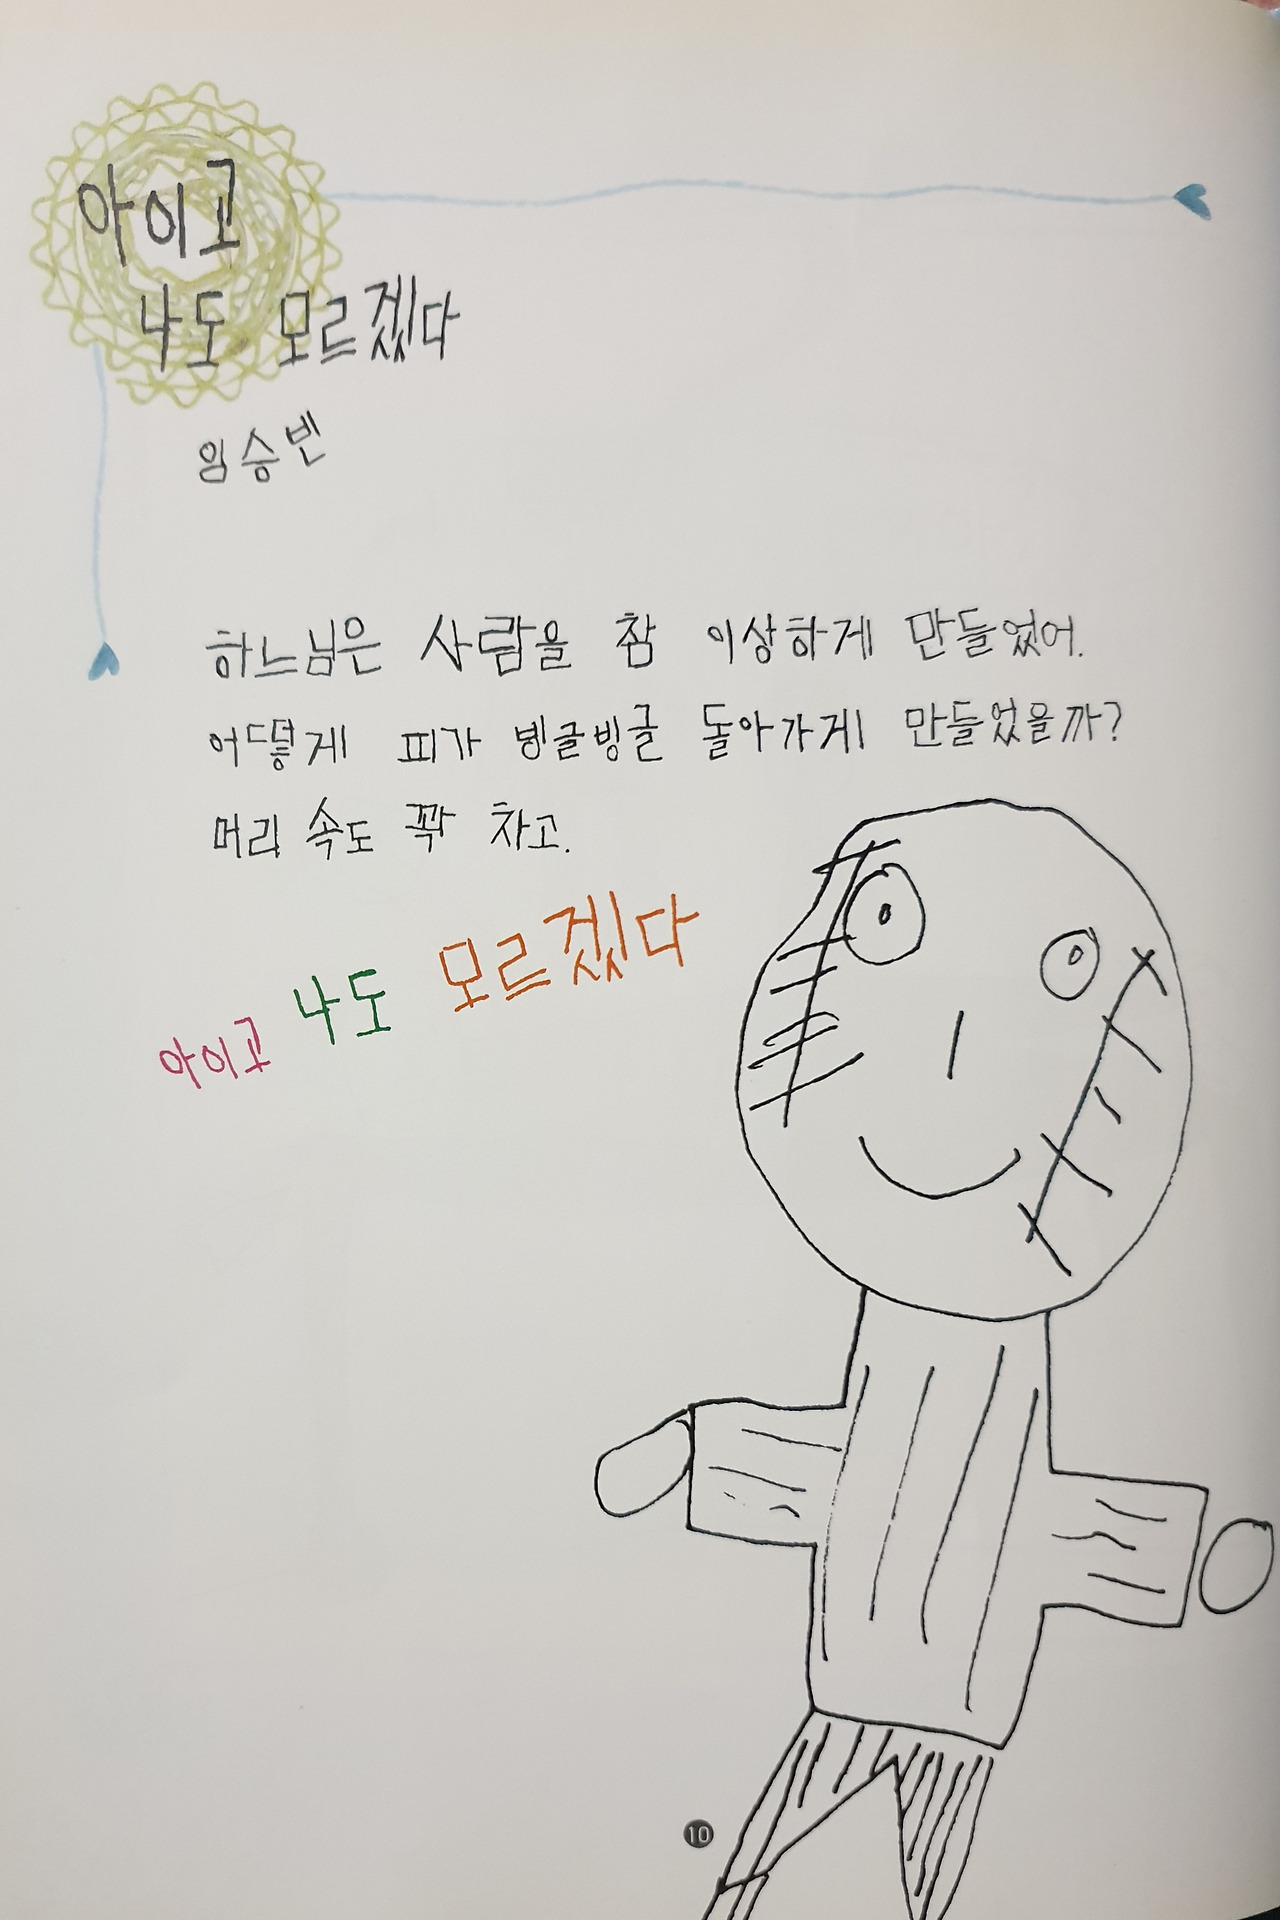 아이고
나도 모르겠다
임승빈
하느님은 사람을 참 이상하게 만들었어.
어떻게 피가 빙글빙글 돌아가게 만들었을까?
머리 속도 꽉 차고.
아이고 나도 모르겠다
10